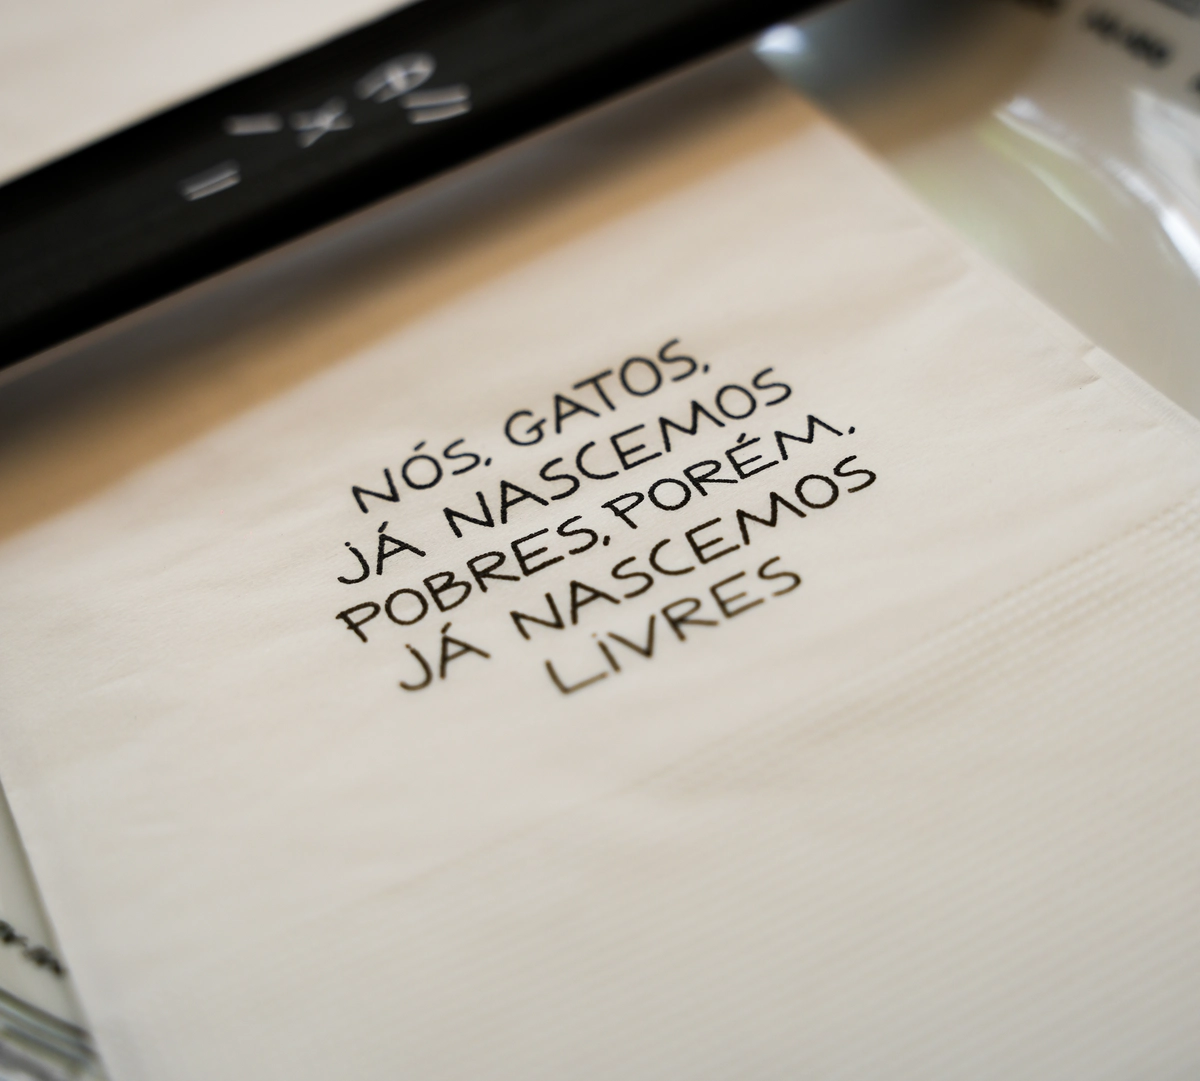 NÓS, GATOS,
JÁ NASCEMOS
POBRES, PORÉM,
JÁ NASCEMOS
LIVRES